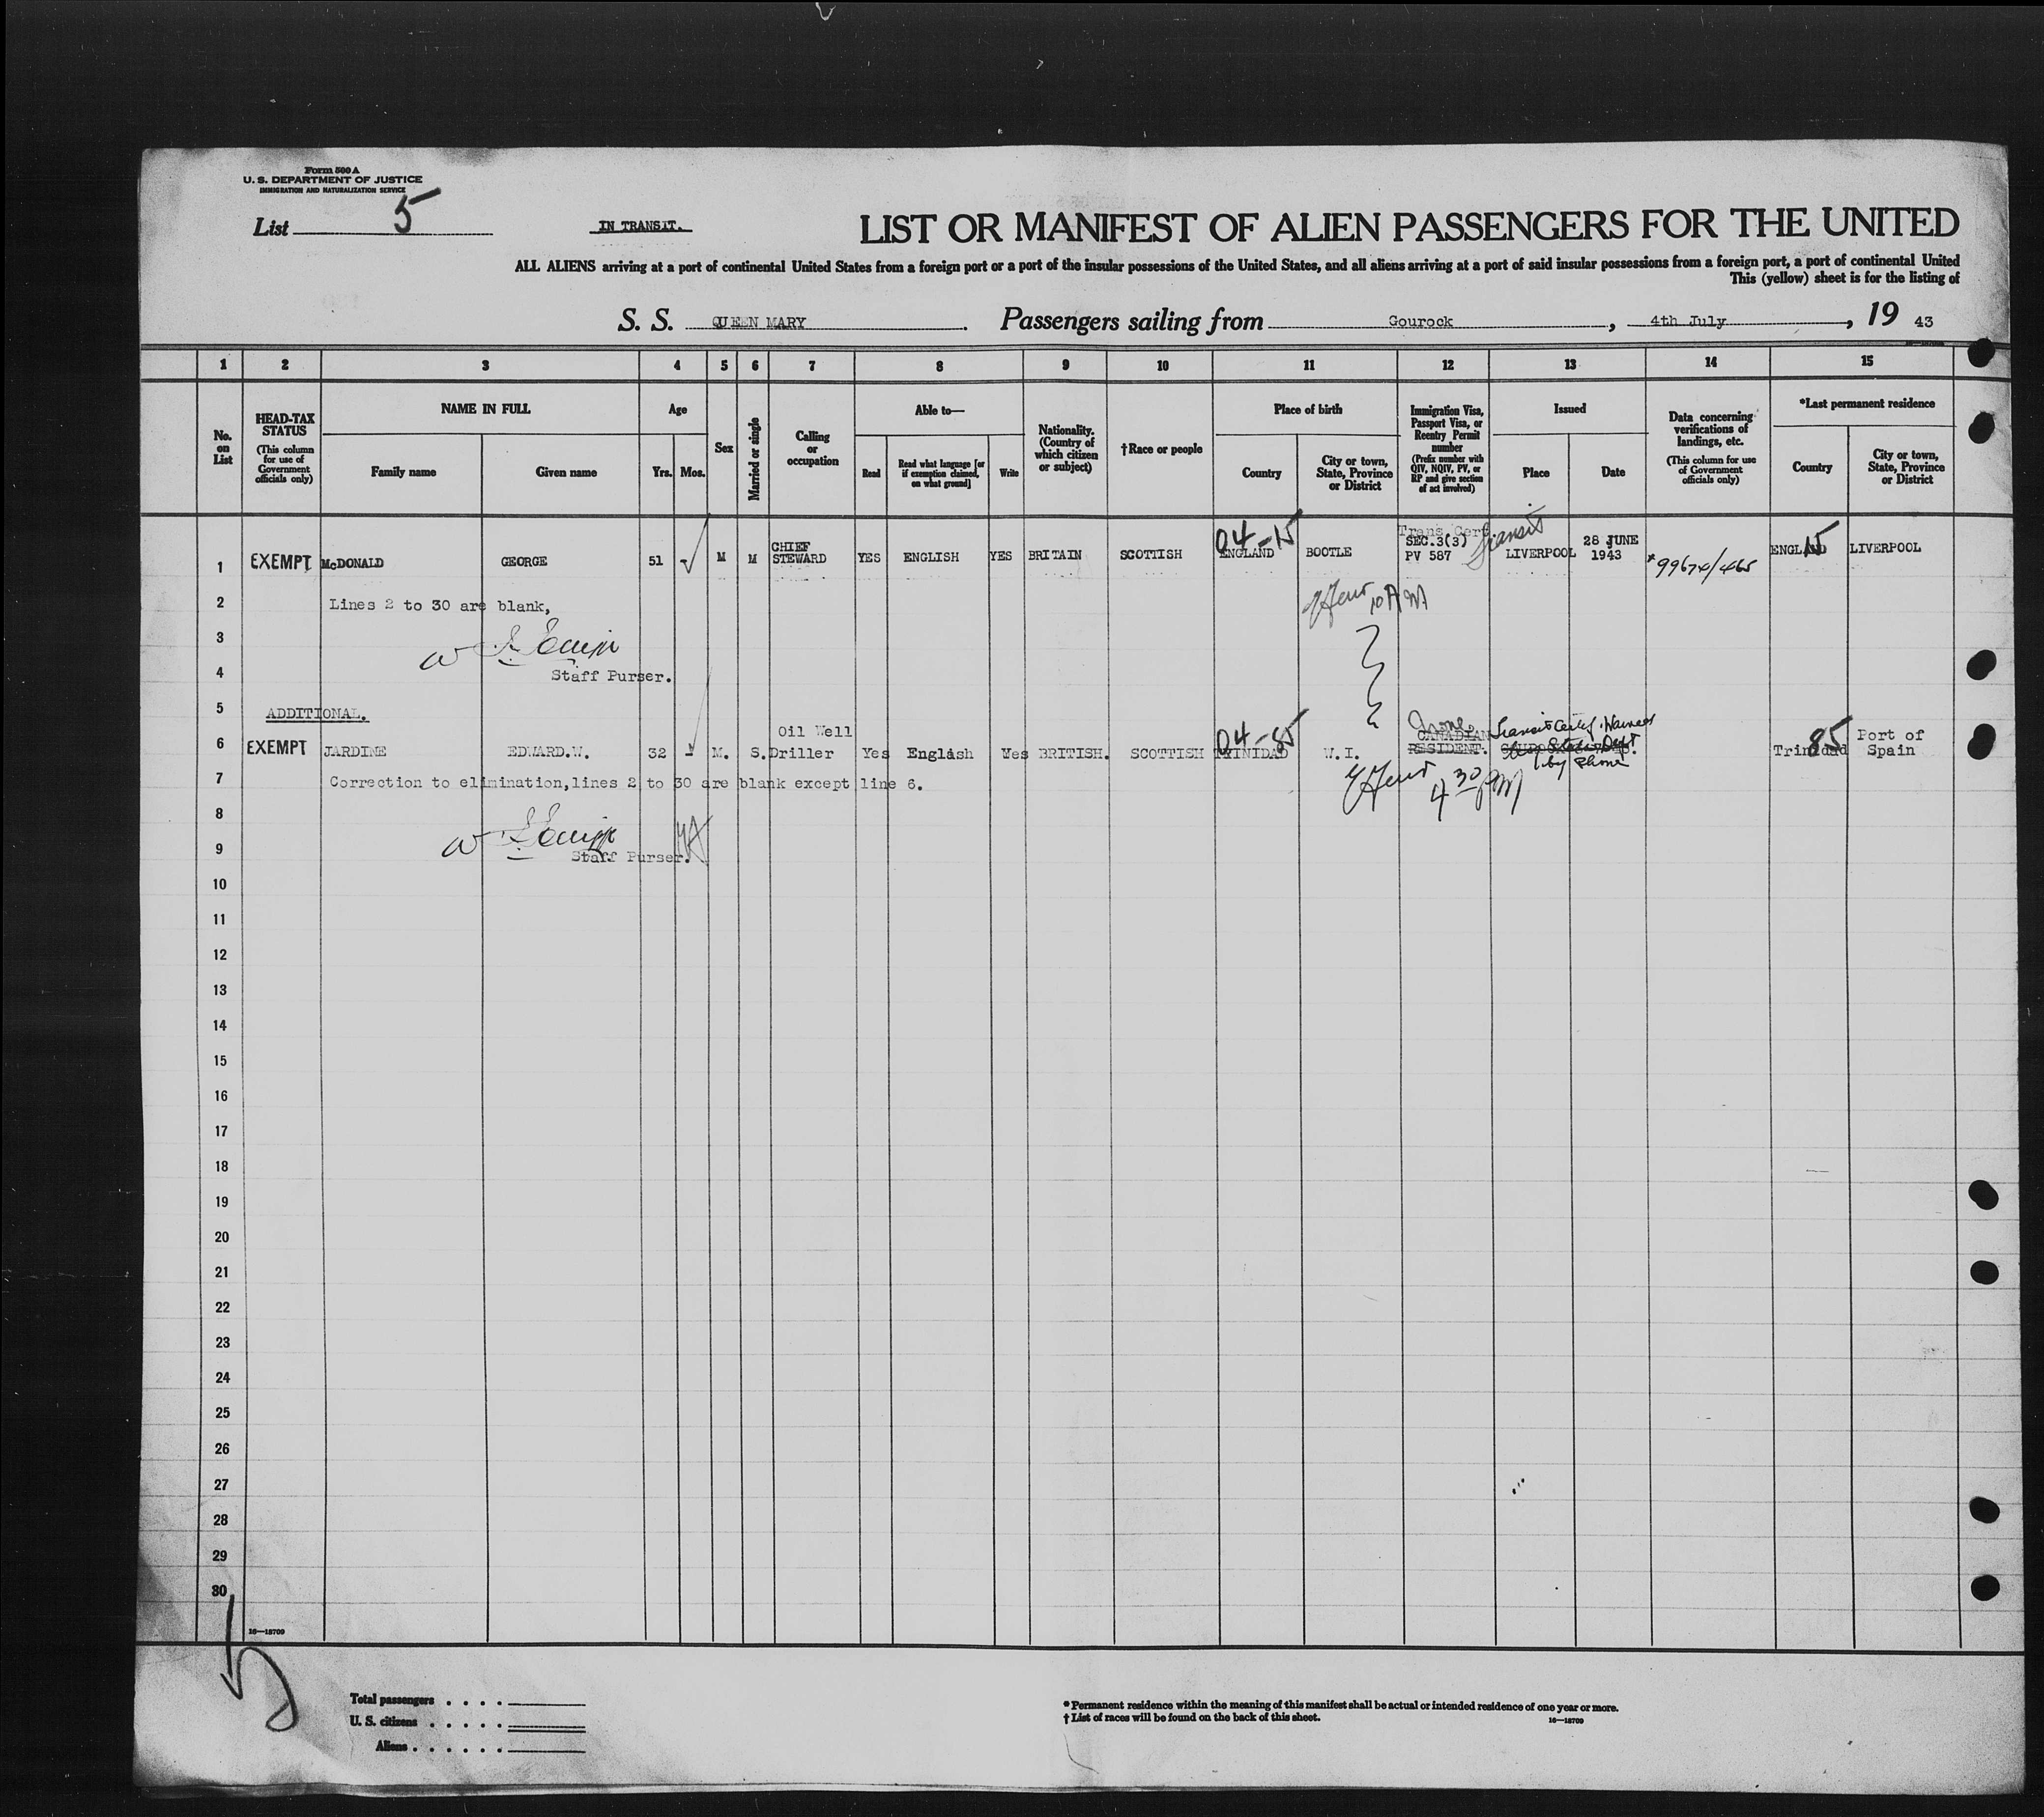 Form 500 A
U. S. DEPARTMENT OF JUSTICE
IMMIGRATION AND NATURALIZATION SERVICE
List 5
IN TRANSIT.
LIST OR MANIFEST OF ALIEN PASSENGERS FOR THE UNITED
ALL ALIENS arriving at a port of continental United States from a foreign port or a port of the insular possessions of the United States, and all aliens arriving at a port of said insular possessions from a foreign port, a port of continental United
This (yellow) sheet is for the listing of
S. S. QUEEN MARY. Passengers sailing from Gourock, 4th July, 19 43
1 2 3 4 5 6 7 8 9 10 11 12 13 14 15
No. on List
HEAD-TAX STATUS
(This column for use of Government officials only)
NAME IN FULL
Family name
Given name
Age
Yrs. Mos.
Sex
Married or single
Calling or occupation
Able to—
Read
Read what language [or if exemption claimed, on what ground]
Write
Nationality. (Country of which citizen or subject)
†Race or people
Place of birth
Country
City or town, State, Province or District
Immigration Visa, Passport Visa, or Reentry Permit number
(Prefix number with QIV, NQIV, PV, or RP and give section of act involved)
Issued
Place
Date
Data concerning verifications of landings, etc.
(This column for use of Government officials only)
*Last permanent residence
Country
City or town, State, Province or District
1 EXEMPT McDONALD GEORGE 51 M M CHIEF STEWARD YES ENGLISH YES BRITAIN SCOTTISH 04-15 ENGLAND BOOTLE Trans. Cert. SEC.3(3) PV 587 Transit LIVERPOOL 28 JUNE 1943 *99674/465 ENGLAND 15 LIVERPOOL
2 Lines 2 to 30 are blank,
10 AM
3
4 Staff Purser.
5 ADDITIONAL.
6 EXEMPT JARDINE EDWARD.W. 32 - M. S. Oil Well Driller Yes English Yes BRITISH. SCOTTISH 04-85 TRINIDAD W.I. None CANADIAN RESIDENT. Transit Certf. Waived by State Dept by phone Trinidad 85 Port of Spain
7 Correction to elimination, lines 2 to 30 are blank except line 6.
4 30 PM
8
9 Staff Purser.
10
11
12
13
14
15
16
17
18
19
20
21
22
23
24
25
26
27
28
29
30
16—18709
5
Total passengers . . . .
U. S. citizens . . . . .
Aliens . . . . . .
* Permanent residence within the meaning of this manifest shall be actual or intended residence of one year or more.
† List of races will be found on the back of this sheet.
16—18709